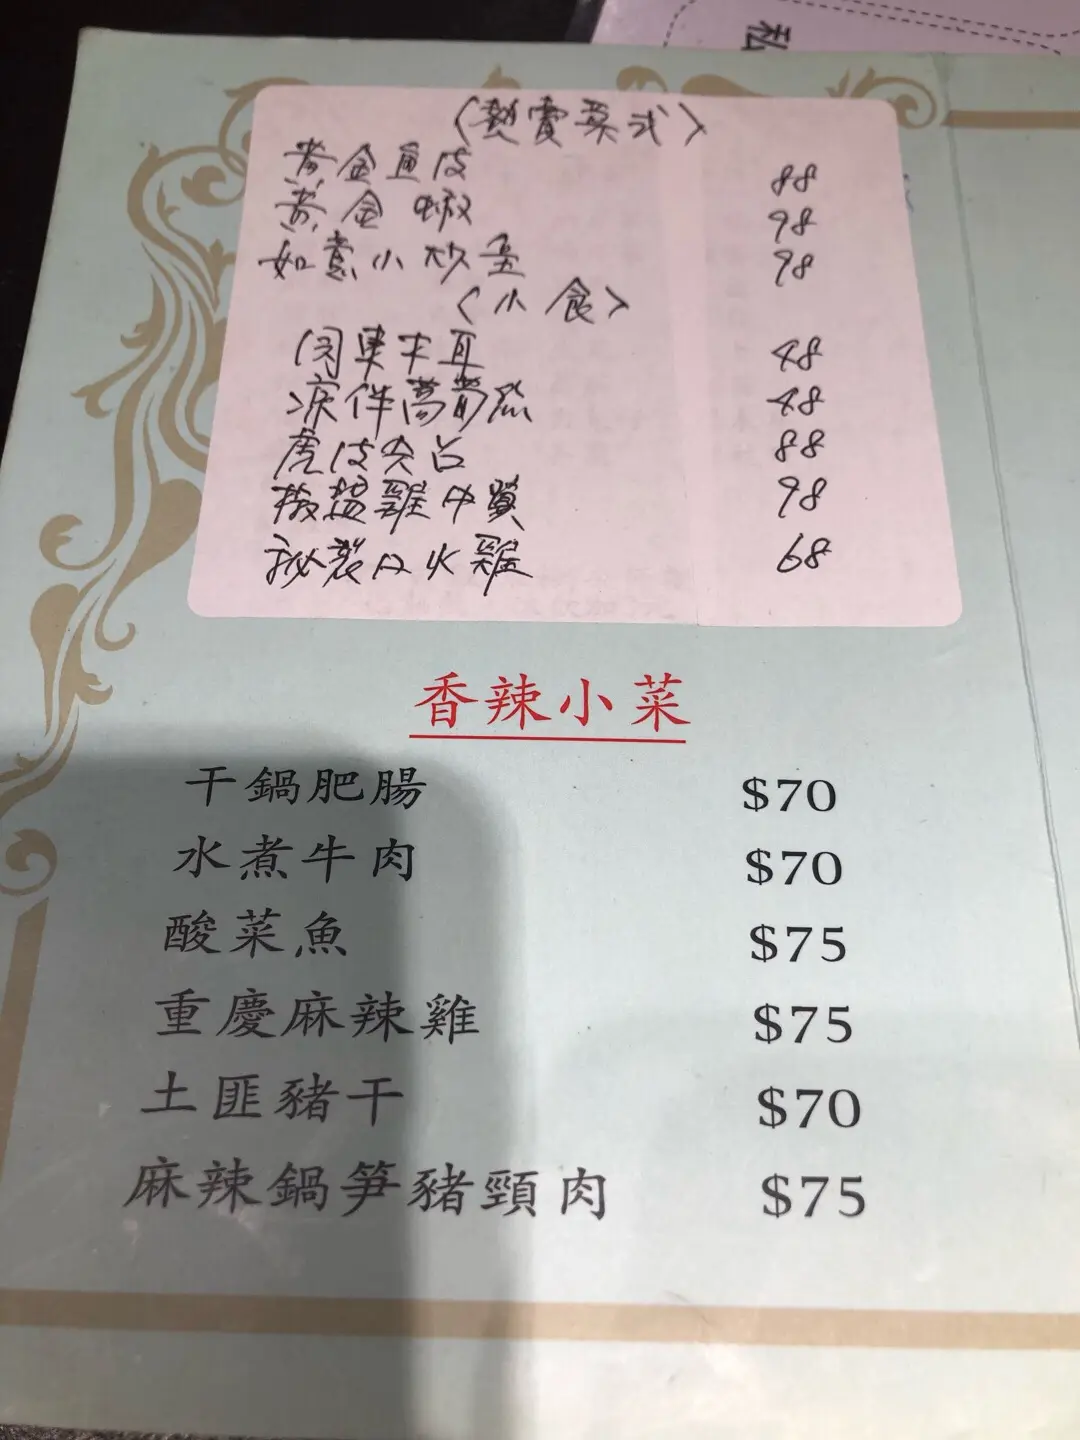 私
〈熱賣菜式〉
黃金魚皮 88
黃金蝦 98
如意小炒 98
〈小食〉
關東木耳 48
涼伴萵 48
虎皮尖 88
椒鹽雞中翼 98
秘製口水雞 68
香辣小菜
干鍋肥腸 $70
水煮牛肉 $70
酸菜魚 $75
重慶麻辣雞 $75
土匪豬干 $70
麻辣鍋笋豬頸肉 $75